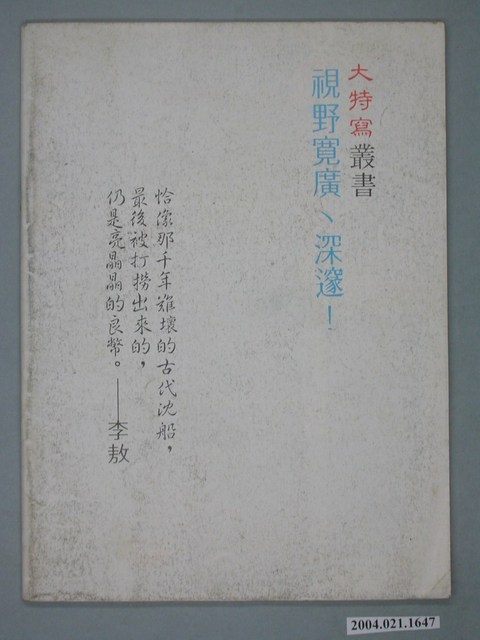 大特寫叢書
視野寬廣、深邃！
恰像那千年難壞的古代沈船，
最後被打撈出來的，
仍是亮晶晶的良幣。——李敖
2004.021.1647